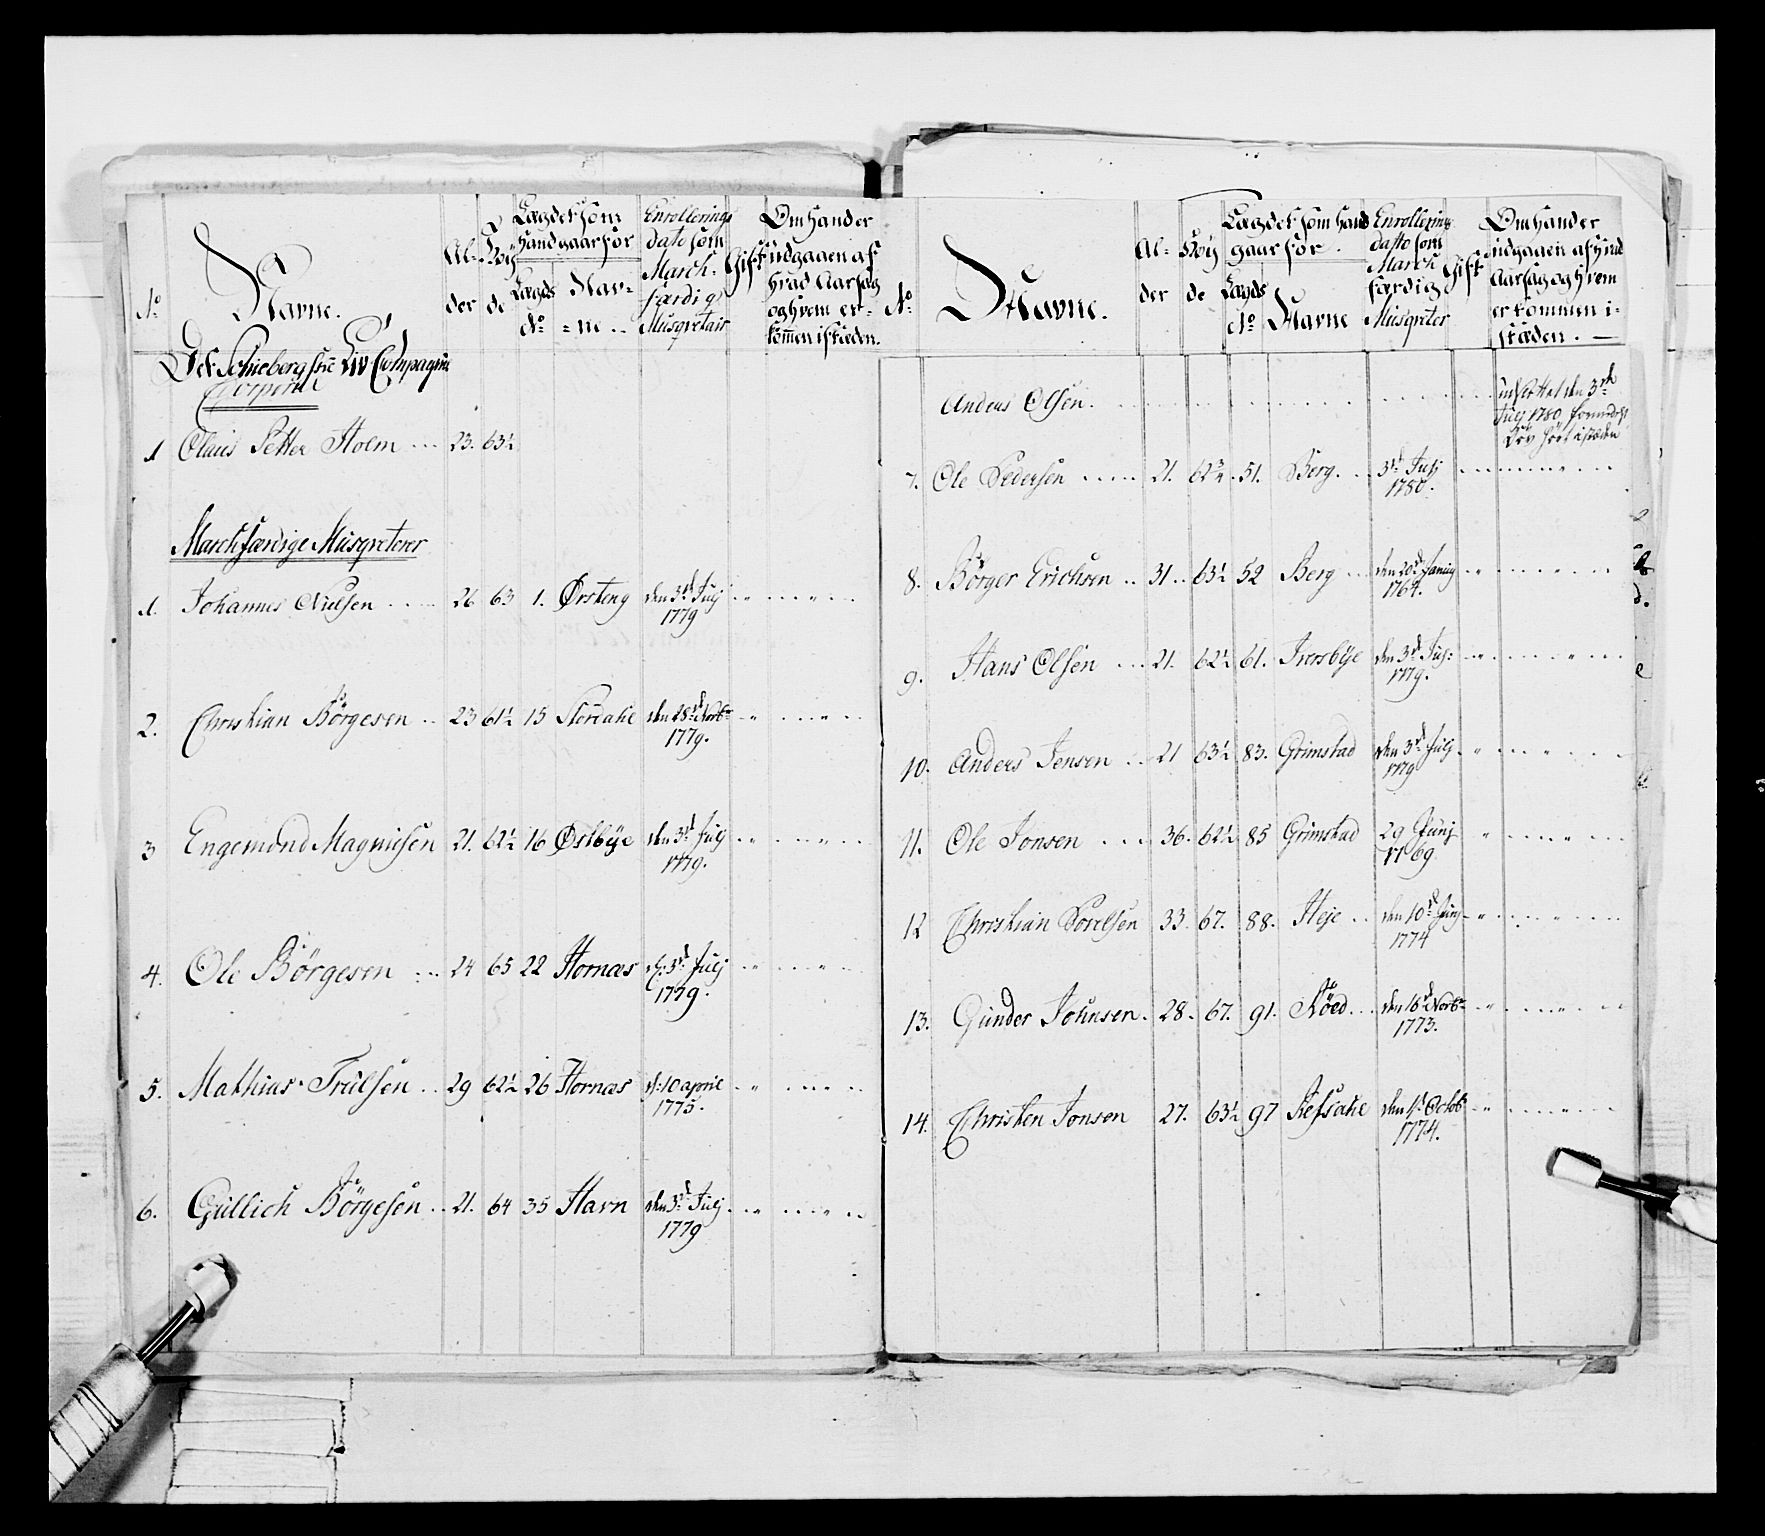 No
Navne.
Al-
der
Höy
de
Lægdet som
hand gaar for
Lægds
No
Nav-
ne
Enrollerings
dato som
March-
færdig
Musqvetair
Gift
Om hand er
udgaaen af
hvad Aarsag
og hvem er-
kommen i stæden.
Corporal
1 Claus Petter Holm 23. 63½
Marchfærdige Musqveterer
1. Johannes Nielsen 26 63 1. Ørsteng den 3die Julj
1779
2. Christian Börgesen 23 61½ 15 den 28de Novbr
1779.
3 Engemund Magnusen 21. 62½ 16 Østbye den 3die Julj
1779.
4. Ole Börgesen 24 65 22 Hornæs d: 3die Julj
1779.
5. Mathias Trulsen 29 62½ 26 Hornæs d: 10 april
1775.
6. Gullich Börgesen 21. 64 35 Havn den 3die Julj
1779
No
Navne.
Al-
der
Höy
de
Lægdet som hand
gaar for.
Lægds
No
Navne
Enrollerings
datto som
March
færdig
Musqveter
Gift
Om hand er
udgaaen af hvad
Aarsag og hvem
er kommen i-
stæden.
Anders Olsen. den 3die
Julj 1780
7. Ole Pedersen 21. 62¾ 51. Berg. 3die Julj
1780.
8. Börger Erichsen 31 63½ 52 Berg den 20de
1764.
9. Hans Olsen 21. 62½ 61. Iversbye den 3die Julj:
1779.
10. Anders Jensen 21 63½ 83. Grimstad den 3die Julj
1779
11. Ole Jonsen 36. 62½ 85 Grimstad 29 Junj
1769
12 Christian 33. 67. 88. Heje den 10de Junj
1774
13. Gunder Johnsen. 28. 67. 91. Röed den 16de Novbr
1773.
14. Christen Jonsen 27. 63½ 97 Refsahl den 1ste Octobr
1774.